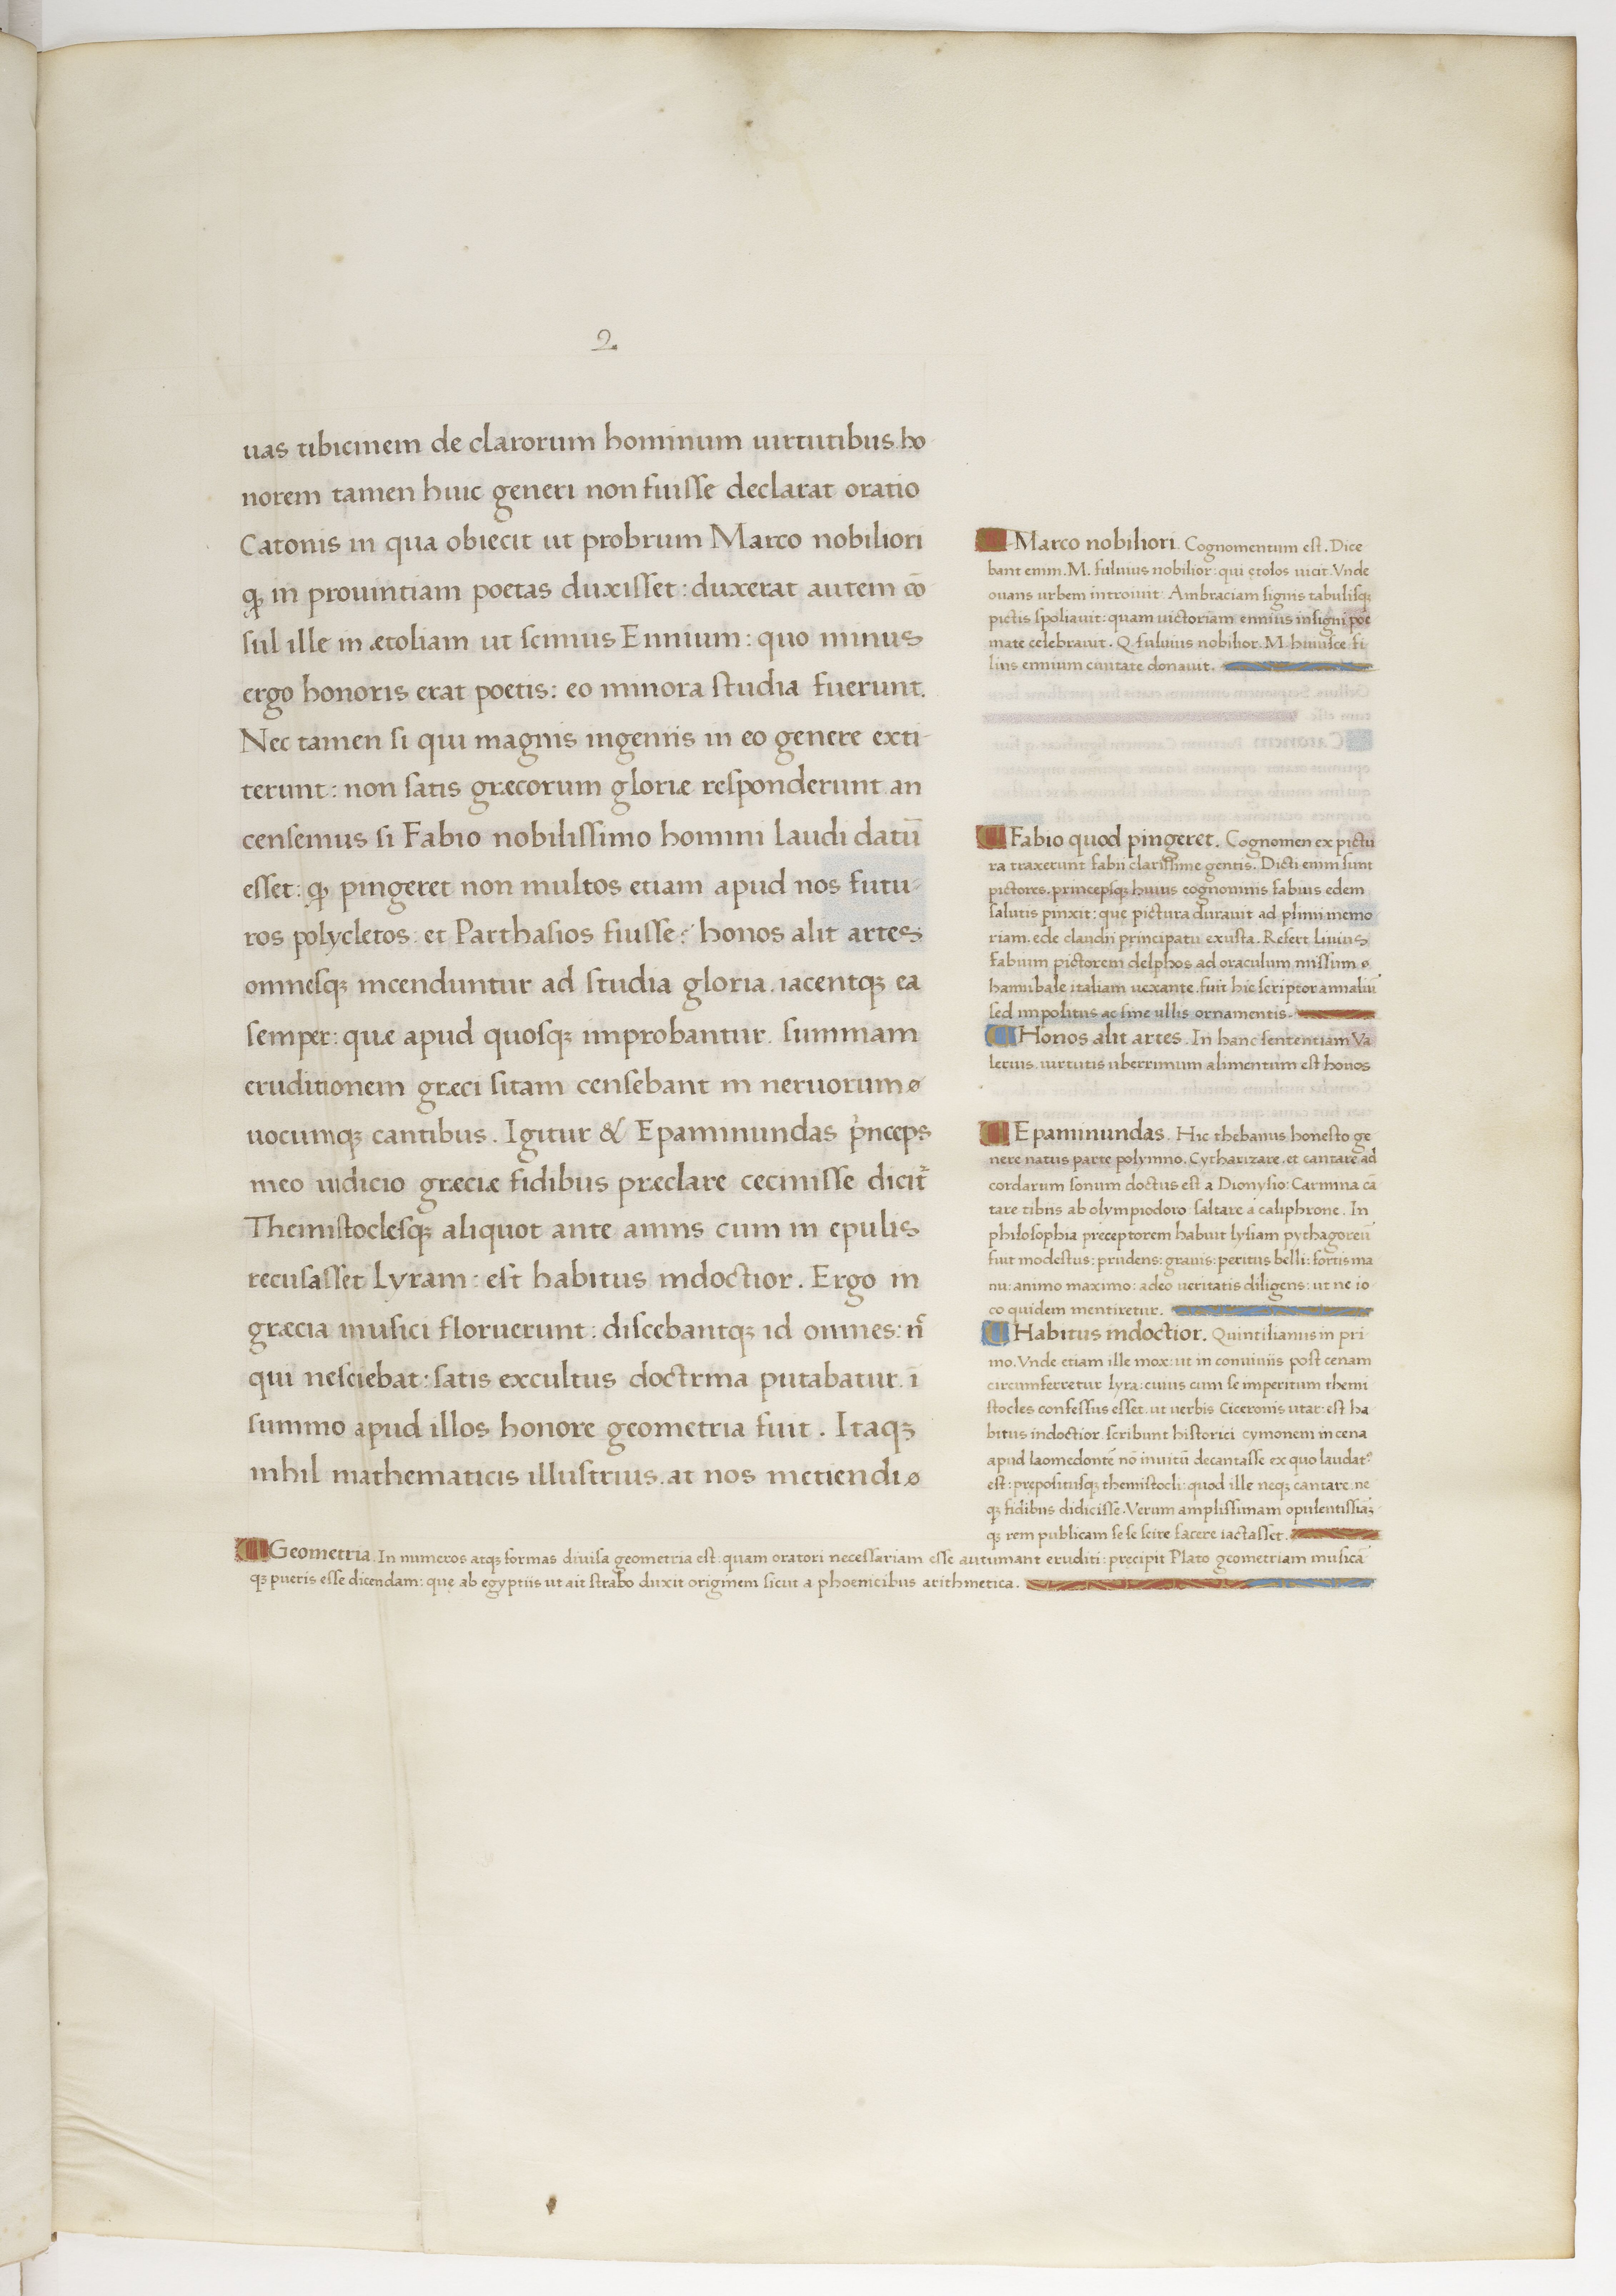 2.
uas tibicinem de clarorum hominum uirtutibus. ho
norem tamen huic generi non fuisse declarat oratio
Catonis in qua obiecit ut probrum Marco nobiliori
ꝙ in prouintiam poetas duxisset: duxerat autem cō
sul ille in ætoliam ut scimus Ennium: quo minus
ergo honoris erat poetis: eo minora studia fuerunt.
Nec tamen si qui magnis ingeniis in eo genere exti-
terunt: non satis græcorum gloriæ responderunt. an
censemus si Fabio nobilissimo homini laudi datū
esset: ꝙ pingeret non multos etiam apud nos futu-
ros polycletos. et Parthasios fuisse: honos alit artes
omnesqꝫ incenduntur ad studia gloria. iacentqꝫ ea
semper: quæ apud quosqꝫ improbantur. summam
eruditionem græci sitam censebant in neruorum ø
uocumqꝫ cantibus. Igitur & Epaminundas p̍nceps
meo iudicio græciæ fidibus præclare cecinisse dicit᷑
Themistoclesqꝫ aliquot ante annis cum in epulis
recusasset Lyram: est habitus indoctior. Ergo in
græcia musici floruerunt: discebantqꝫ id omnes: n̄
qui nesciebat: satis excultus doctrina putabatur. ī
summo apud illos honore geometria fuit. Itaqꝫ
nihil mathematicis illustrius. at nos metiendi ø
Marco nobiliori. Cognomentum est. Dice
bant enim. M. fuluius nobilior: qui ętolos uicit. Vnde
ouans urbem introiuit. Ambraciam signis tabulisqꝫ
pictis spoliauit: quam uictoriam ennius insigni poe
mate celebrauit. Q. fuluius nobilior. M. huiusce fi
lius ennium ciuitate donauit.
Fabio quod pingeret. Cognomen ex pictu
ra traxerunt fabii clarissime gentis. Dicti enim sunt
pictores. princepsqꝫ huius cognominis fabius edem
salutis pinxit: que pictura durauit ad plinii memo
riam. ede claudii principatu exusta. Refert Liuius
fabium pictorem delphos ad oraculum missum ø
hannibale italiam uexante. fuit hic scriptor annaliū
sed impolitus ac sine ullis ornamentis.
Honos alit artes. In hanc sententiam Va
lerius. uirtutis uberrimum alimentum est honos
Epaminundas. Hic thebanus honesto ge
nere natus parte polymno. Cytharizare. et cantare ad
cordarum sonum doctus est a Dionysio: Carmina cā
tare tibiis ab olympiodoro: saltare a caliphrone. In
philosophia preceptorem habuit lysiam pythagoreū
fuit modestus: prudens: grauis: peritus belli: fortis ma
nu: animo maximo: adeo ueritatis diligens: ut ne io
co quidem mentiretur.
Habitus indoctior. Quintilianus in pri
mo. Vnde etiam ille mox: ut in conuiuiis post cenam
circumferretur lyra: cuius cum se imperitum themi
stocles confessus esset. ut uerbis Ciceronis utar: est ha
bitus indoctior. scribunt historici cymonem in cena
apud laomedontē nō inuitū decantasse ex quo laudatꝰ
est: prepositusqꝫ themistocli: quod ille neqꝫ cantare. ne
qꝫ fidibus didicisse. Verum amplissimam opulentissiaꝫ
qꝫ rem publicam se se scire facere iactasset.
Geometria. In numeros atqꝫ formas diuisa geometria est: quam oratori necessariam esse autumant eruditi: precipit Plato geometriam musicā
qꝫ pueris esse dicendam: quę ab egyptiis ut ait strabo duxit originem sicut a phoenicibus arithmetica.